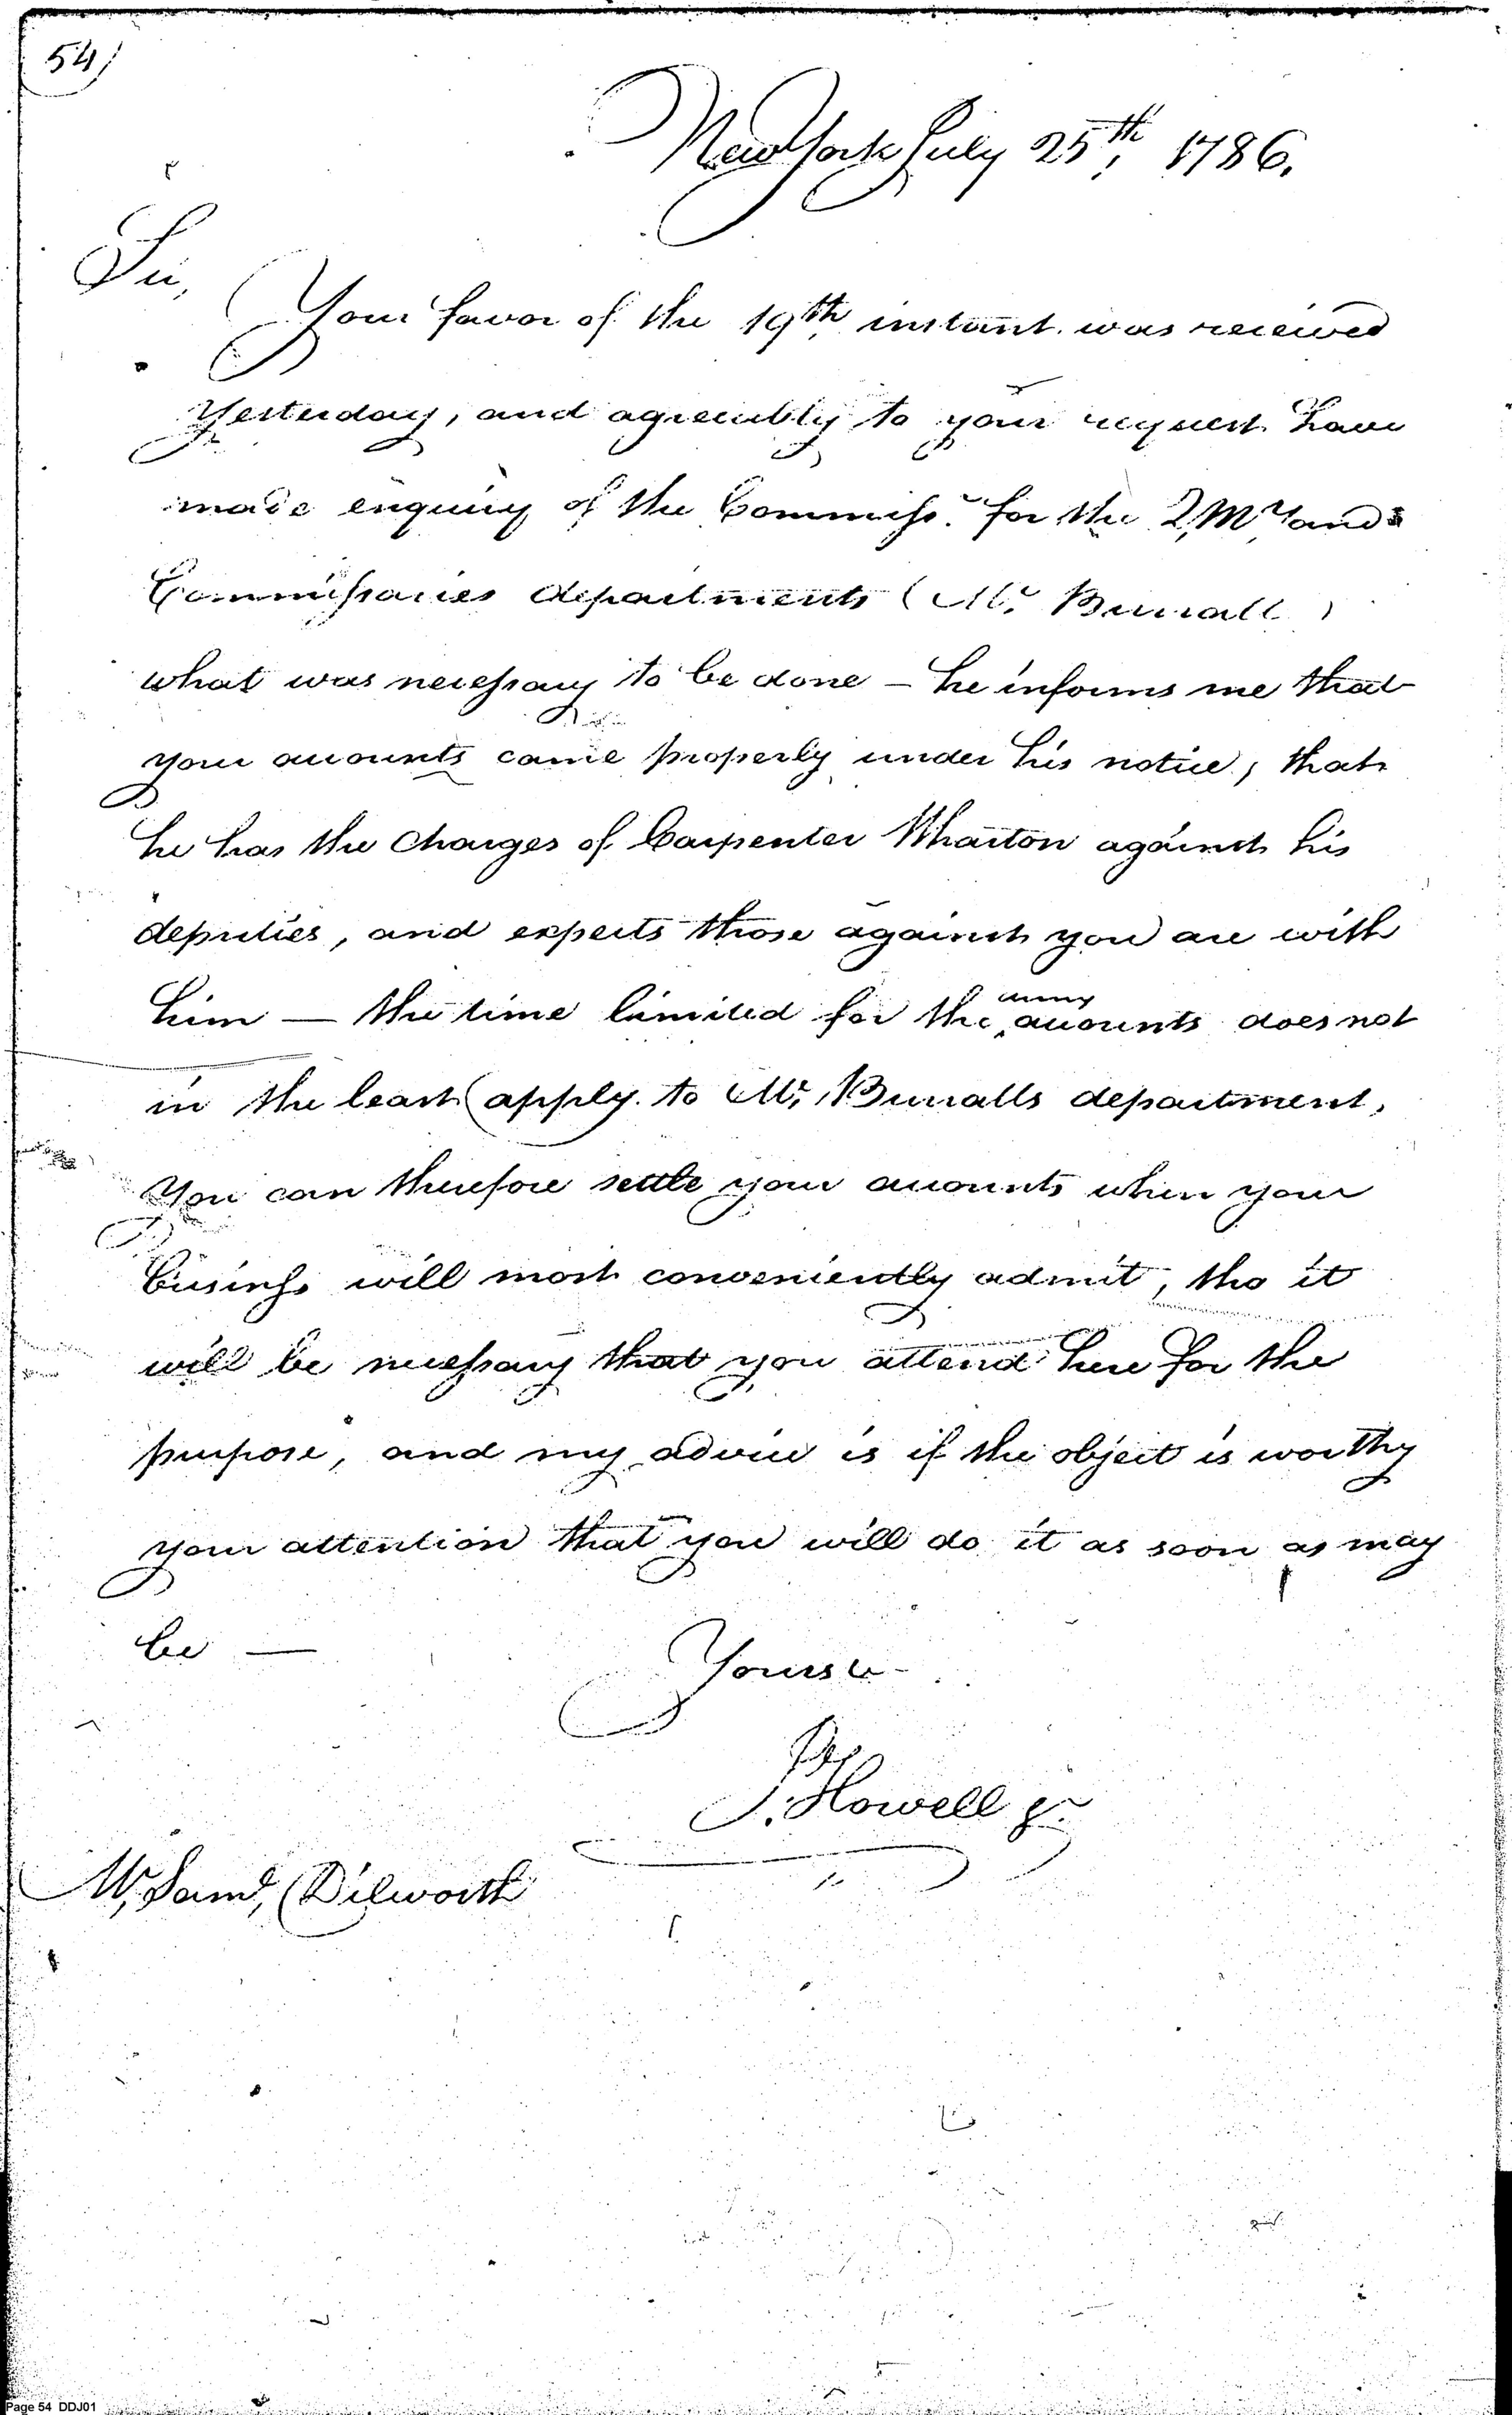 54)
New York July 25th, 1786.
Sir,
Your favor of the 19th, instant was received
Yesterday, and agreeably to your request have
made enquiry of the Commissr. for the Q,Mrs and
Commissaries departments (Mr. Burrall)
what was necessary to be done — he informs me that
your accounts came properly under his notice, that
he has the charges of Carpenter Wharton against his
deputies, and expects those against you are with
army
him — the time limited for the ‸ accounts does not
in the least apply to Mr, Burralls department,
You can therefore settle your accounts when your
business will most conveniently admit, tho it
will be necessary that you attend here for the
purpose, and my advice is if the object is worthy
your attention that you will do it as soon as may
be —
Yours &c
J. Howell jr.
Mr, Saml, Dilworth
Page 54 DDJ01